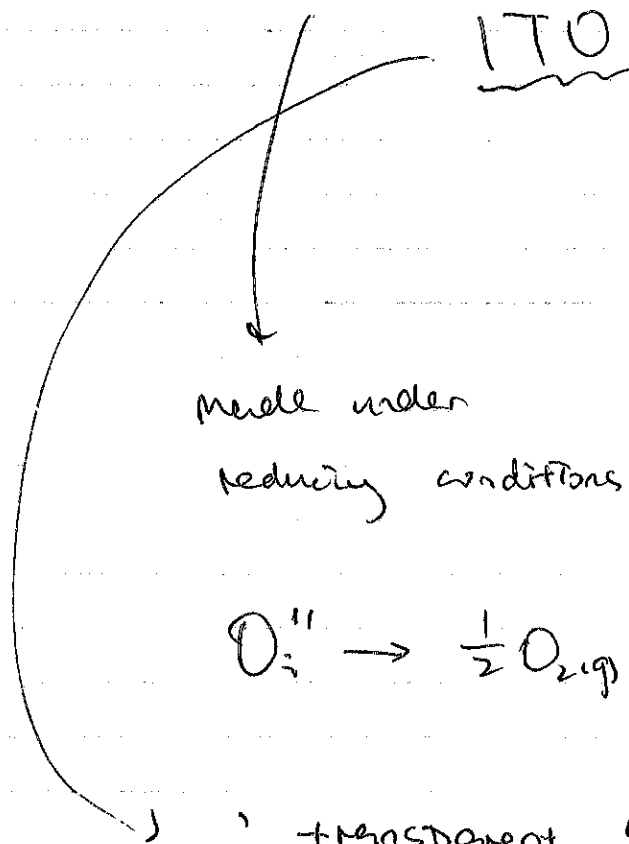 ITO
Made under
reducing conditions
Oᵢ'' → 1/2 O₂(g)
transparent